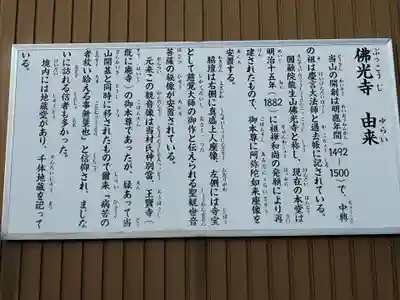 佛光寺 由来
当山の開創は明應年間(1492~1500)で、中興の祖は慶言大法師と過去帳に記されている。
国融院龍生山佛光寺と称し、現在の本堂は明治十五年(1882)に祖禅和尚の発願により再建されたもので、御本尊に阿弥陀如来座像を安置する。
脇壇は右側に真盛上人座像、左側には寺宝として慈覚大師の御作と伝えられる聖観世音菩薩の秘像が安置されている。
元来この観音像は当村氏神別当、王寶寺(既に廃寺)の御本尊であったが、縁あって当山開基と同時に移されたもので爾来『病苦の者救い給える事新量也』と信仰され、まじないに訪れる信者も多かった。
境内には地蔵堂があり、千体地蔵を祀っている。